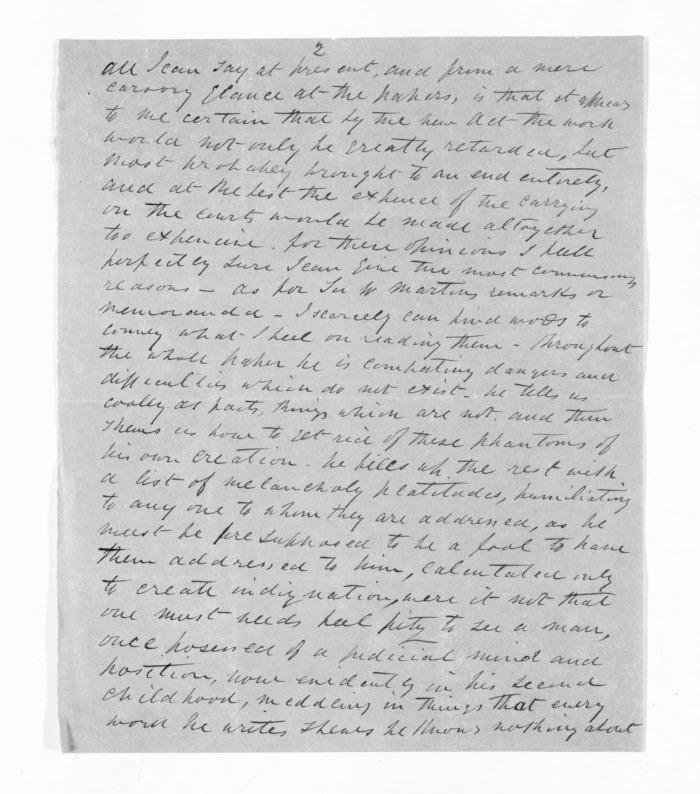 2
all I can say at present, and from a mere
cursory glance at the papers, is that it appears
to me certain that by the new Act the work
would not only be greatly retarded, but
most probabey brought to an end entirely,
and at the best the expence of the carrying
on the courts would be made altogether
too expencive. for these opinions I feel
perfectly sure I can give the most convincing
reasons – as for Sir W Martins remarks or
memoranda – I scarcely can find words to
convey what I feel on reading them – throughout
the whole paper he is combating dangers and
difficulties which do not exist – he tells us
cooley as facts, things which are not. and then
shews us how to get rid of these phantoms of
his own creation – he fills up the rest with
a list of melancholy platitudes, humiliating
to any one to whom they are addressed, as he
must be presupposed to be a fool to have
them addressed to him, calculated only
to create indignation, were it not that
one must needs feel pity to see a man,
once posessed of a judicial mind and
position, now evidently in his second
childhood, meddeing in things that every
word he writes shews he knows nothing about